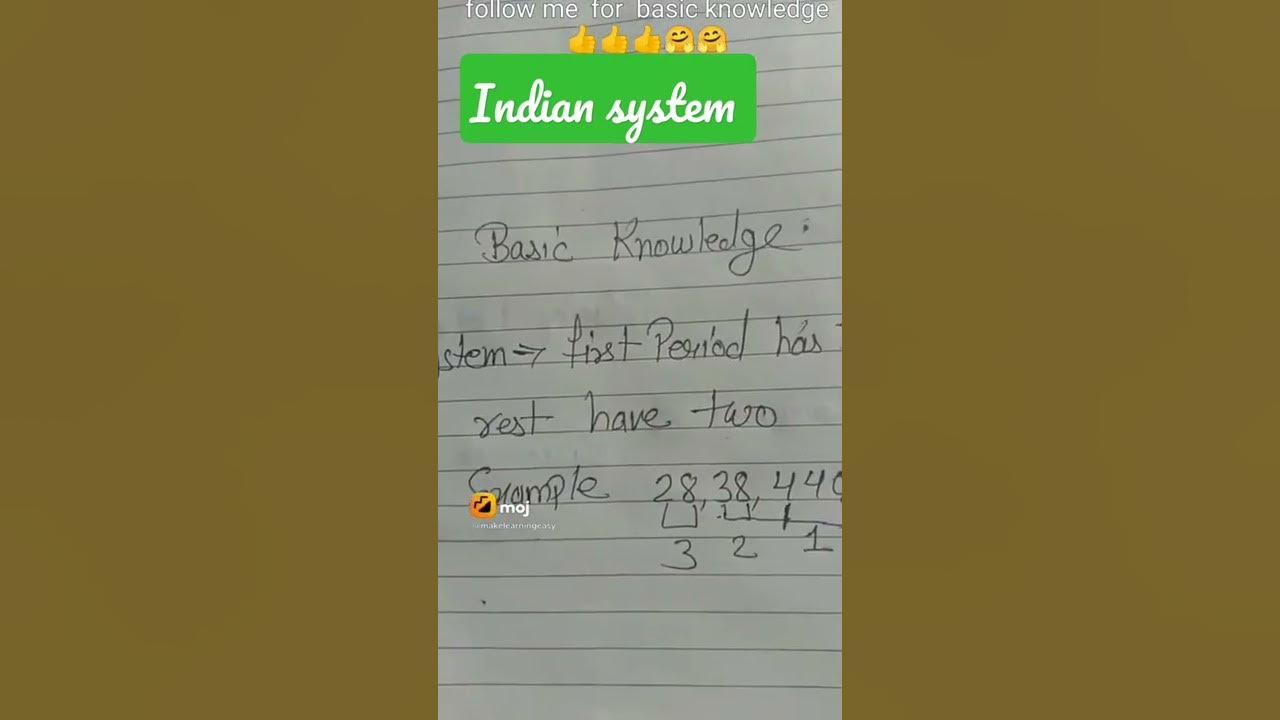 follow me for basic knowledge
👍👍👍🤗🤗
Indian system
Basic Knowledge:
stem⇒ first Period has
rest have two
Example 28,38,440
moj
@makelearningeasy
3 2 1